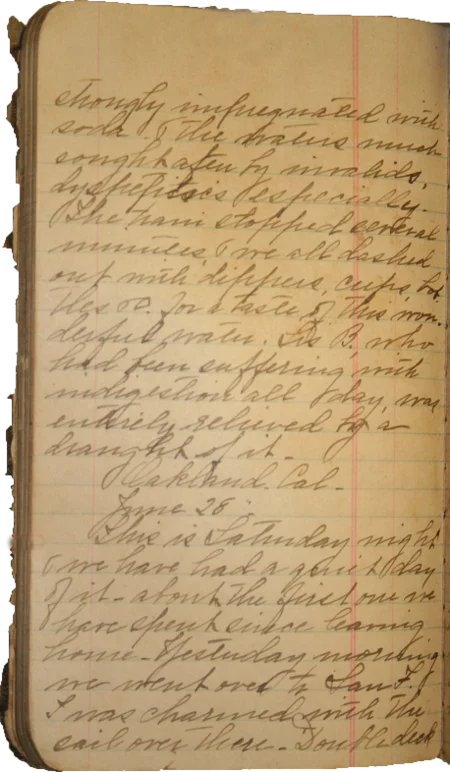 strongly impregnated with
soda & the waters much
sought after by invalids,
dyspeptics especially.
The train stopped several
minutes, & we all dashed
out with dippers, cups, bot
tles &c. for a taste of this won-
derful water. Lis B. who
had been suffering with
indigestion all day, was
entirely relieved by a
draught of it -
Oakland. Cal -
June 28
This is Saturday night
& we have had a quiet day
of it - about the first one we
have spent since leaving
home - Yesterday morning
we went over to San F. &
I was charmed with the
sail over there - Double deck